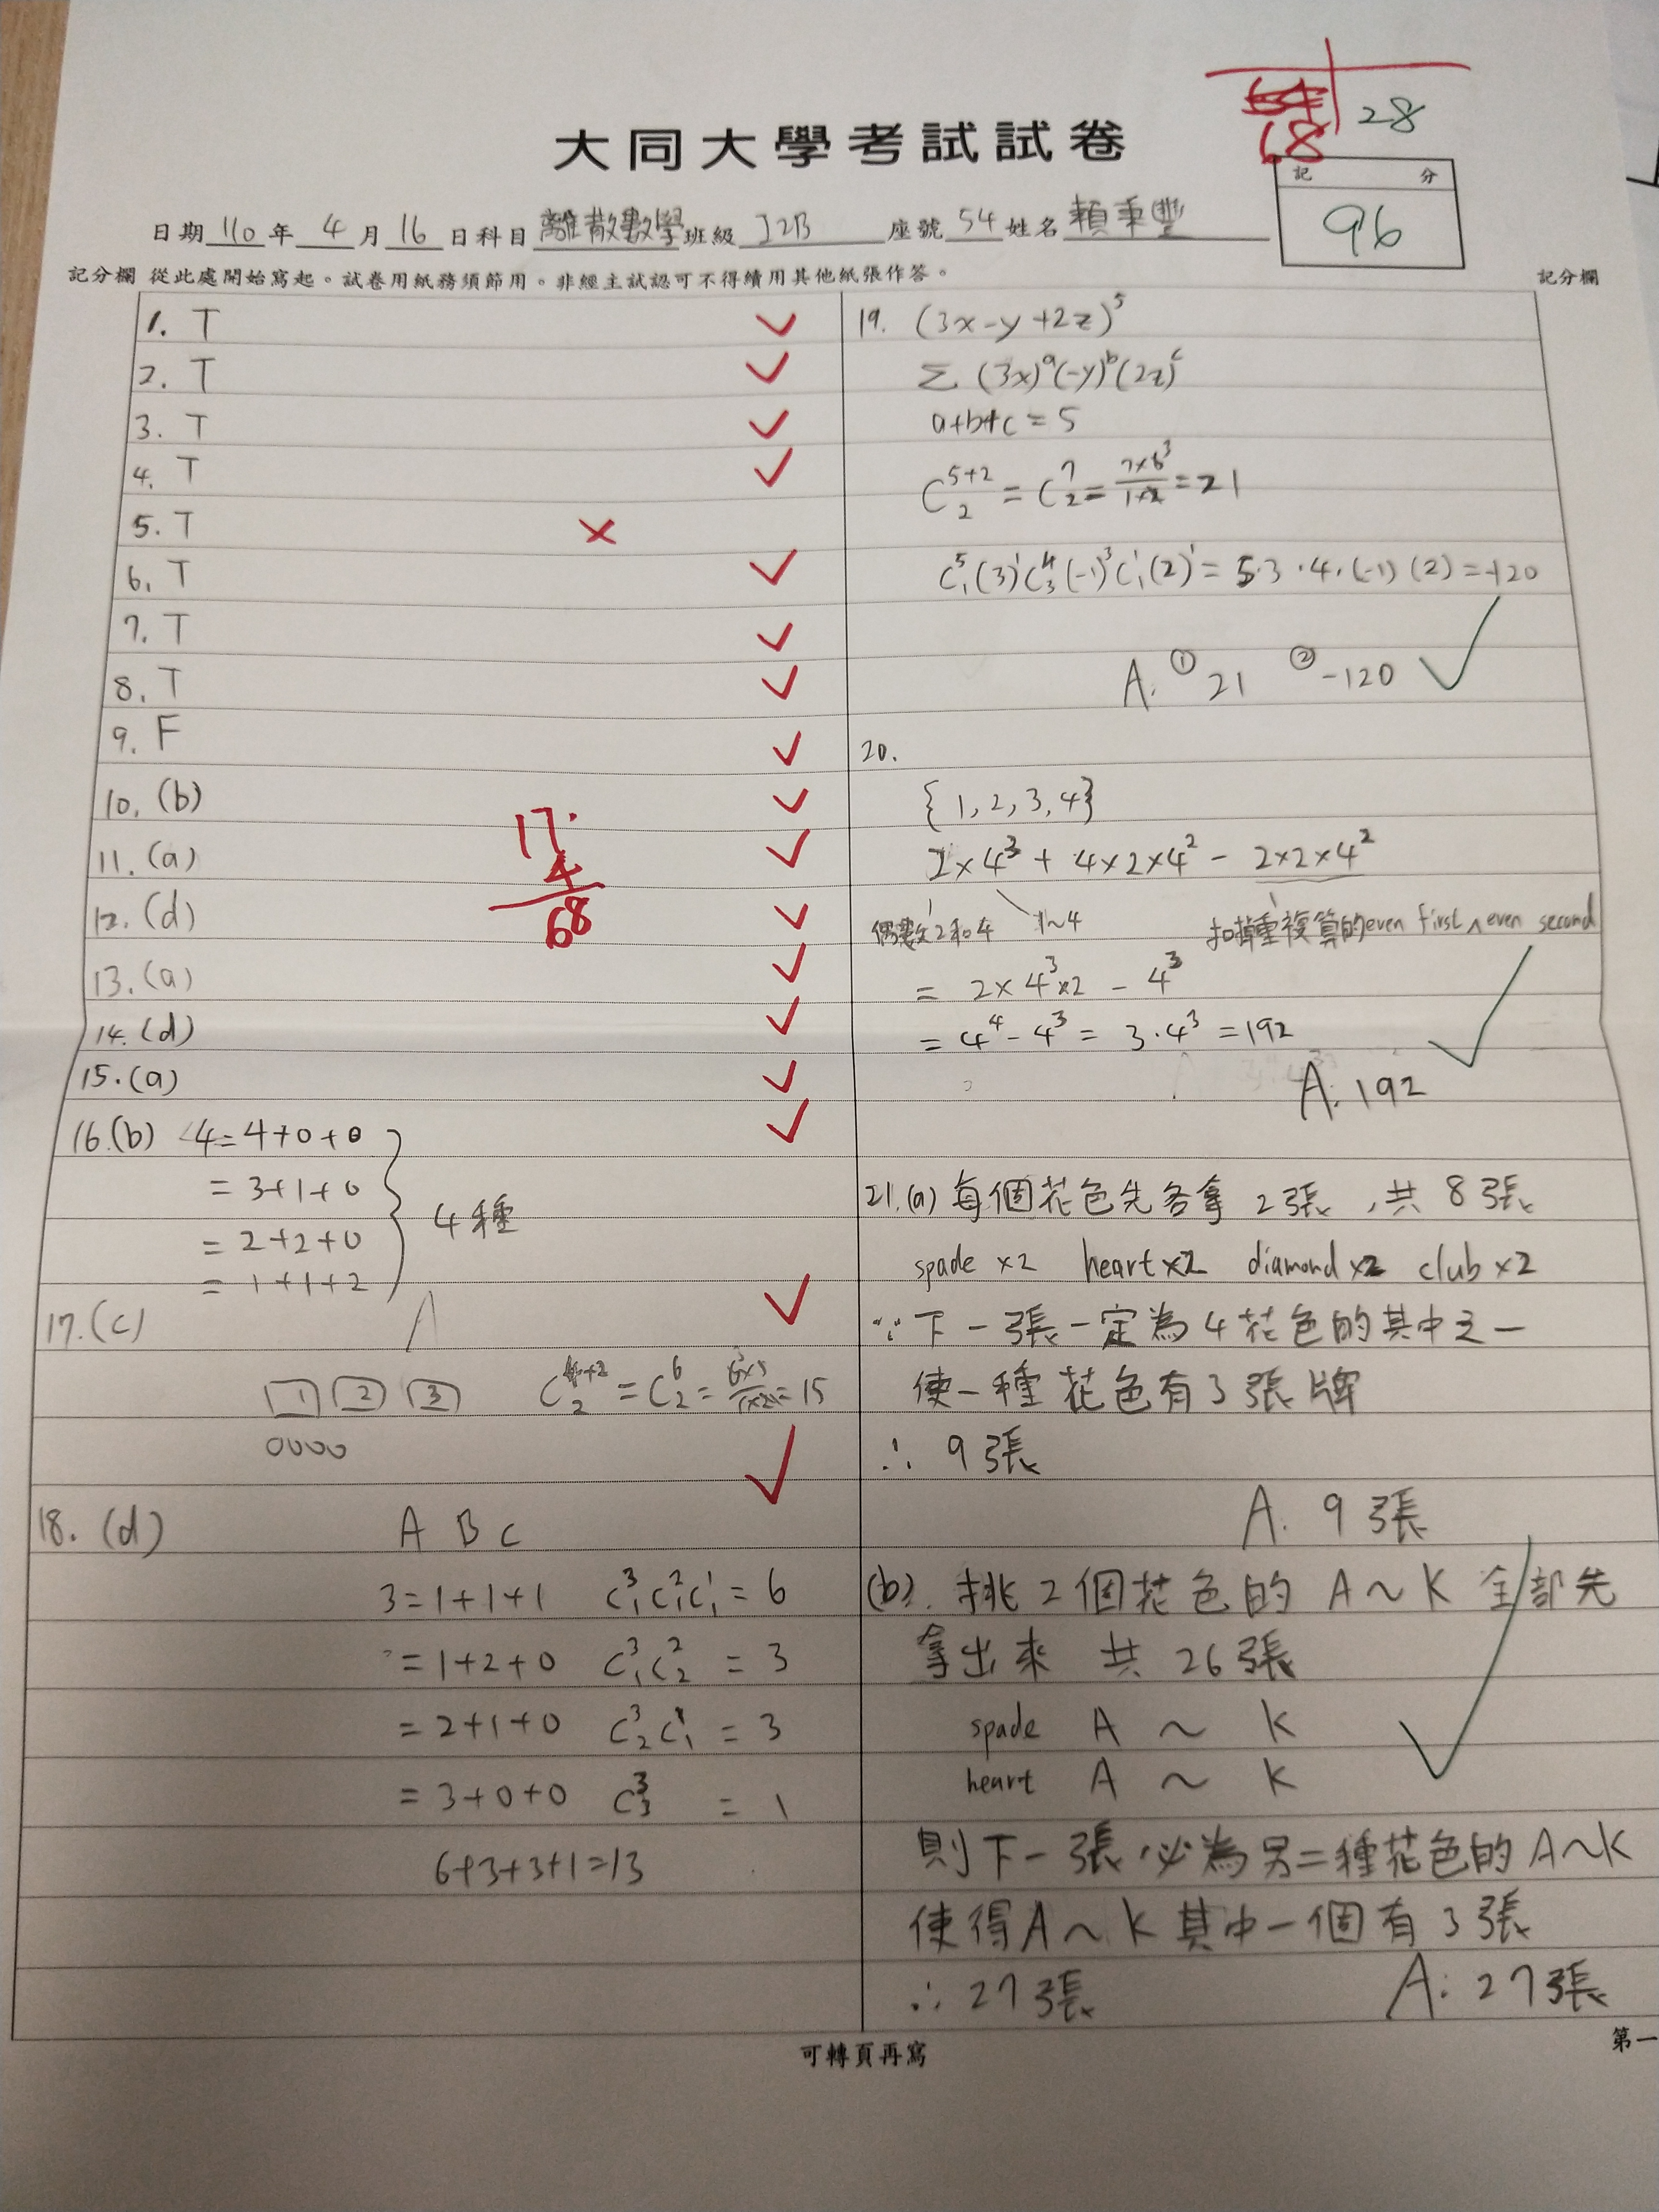 68 28
大同大學考試試卷
記分
96
日期110年4月16日科目離散數學班級I2B座號54姓名賴秉豐
記分欄 從此處開始寫起。試卷用紙務須節用。非經主試認可不得續用其他紙張作答。 記分欄
1. T
2. T
3. T
4. T
5. T
6. T
7. T
8. T
9. F
10. (b)
11. (a)
12. (d)
13. (a)
14. (d)
15. (a)
17.
4
68
16. (b) 4=4+0+0
=3+1+0
=2+2+0
=1+1+2
4種
17. (c)
1 2 3 C⁴⁺²₂ = C⁶₂ = 6×5/1×2 = 15
0000
18. (d) A B C
3=1+1+1 C³₁C²₁C¹₁ = 6
=1+2+0 C³₁C²₂ = 3
=2+1+0 C³₂C¹₁ = 3
=3+0+0 C³₃ = 1
6+3+3+1=13
19. (3x-y+2z)⁵
Σ (3x)ᵃ(-y)ᵇ(2z)ᶜ
a+b+c = 5
C⁵⁺²₂ = C⁷₂ = 7×6/1×2 = 21
C⁵₁(3)¹C⁴₃(-1)³C¹₁(2)¹ = 5·3·4·(-1)(2) = -120
A. ① 21 ② -120
20.
{1,2,3,4}
2×4³ + 4×2×4² - 2×2×4²
偶數2和4 1~4 扣掉重複算的even first ∧ even second
= 2×4³×2 - 4³
= 4⁴-4³ = 3·4³ = 192
A. 192
21. (a) 每個花色先各拿 2張,共 8張
spade ×2 heart×2 diamond ×2 club ×2
∵下一張一定為4花色的其中之一
使一種花色有3張牌
∴ 9張
A. 9張
(b). 挑2個花色的 A~K 全部先
拿出來 共 26張
spade A ~ K
heart A ~ K
則下一張必為另二種花色的A~K
使得A~K其中一個有3張
∴ 27張 A: 27張
可轉頁再寫
第一